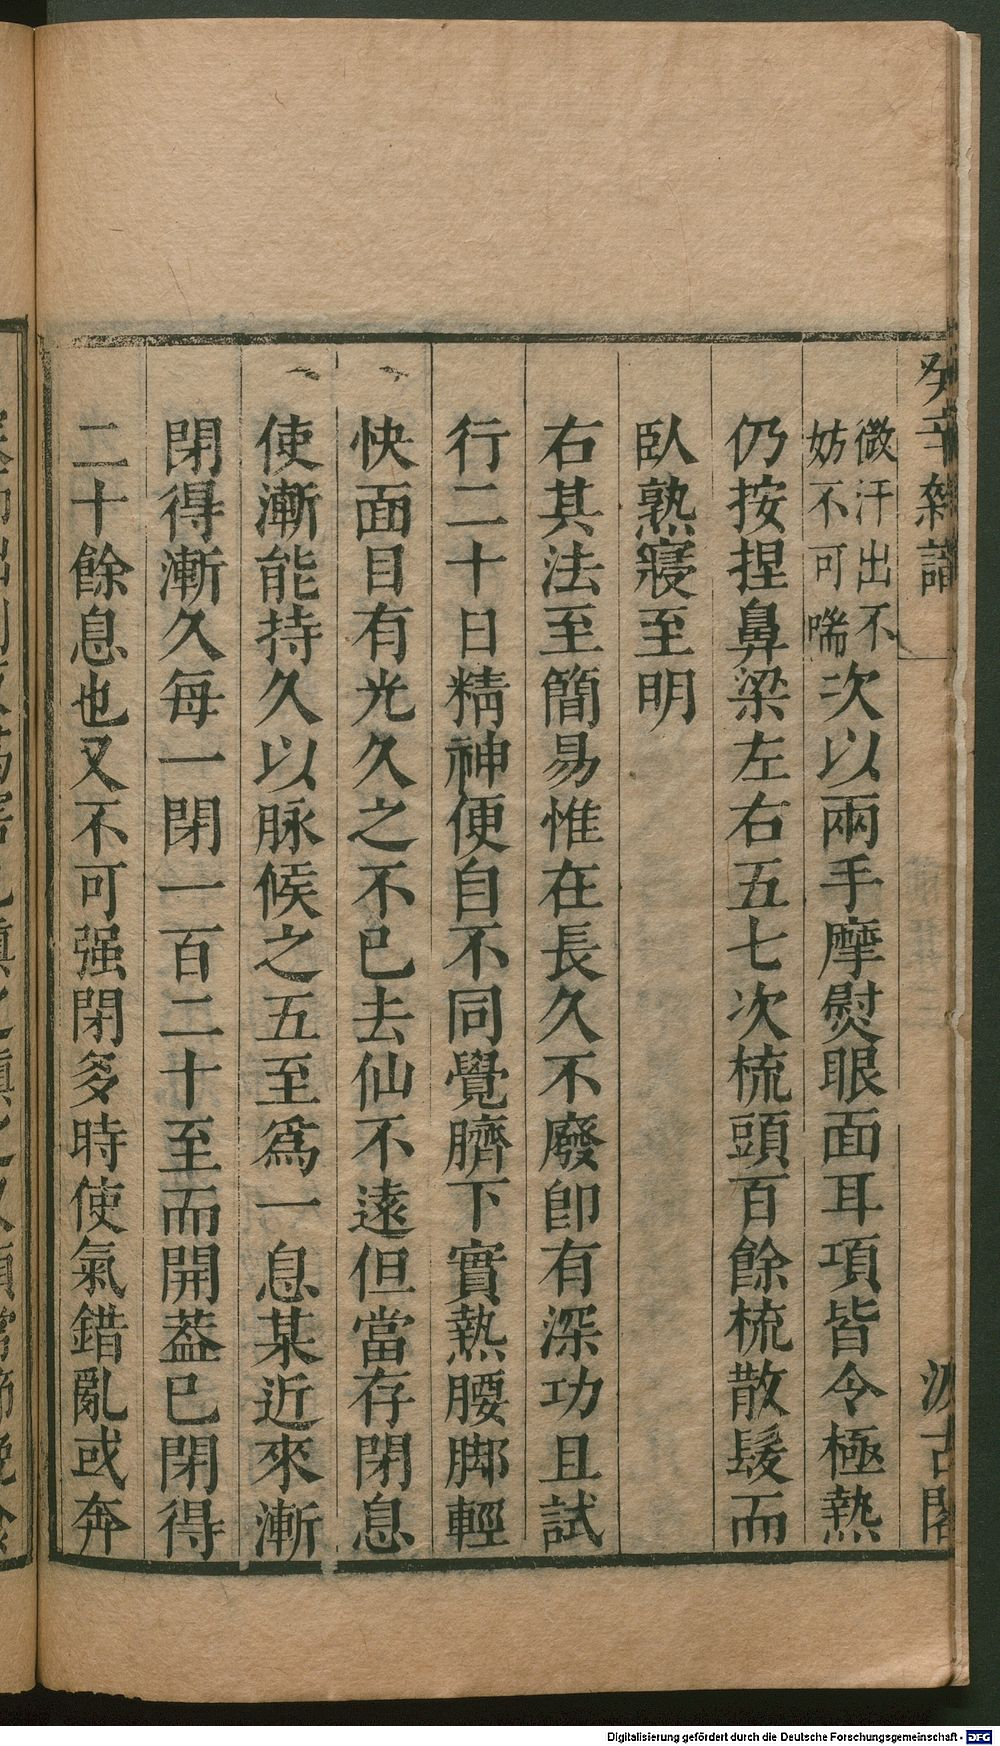 癸辛雜識
汲古閣
微汗出不
妨不可喘
次以兩手摩熨眼面耳項皆令極熱
仍按捏鼻梁左右五七次梳頭百餘梳散髮而
臥熟寢至明
右其法至簡易惟在長久不廢即有深功且試
行二十日精神便自不同覺臍下實熱腰脚輕
快面目有光久之不已去仙不遠但當存閉息
使漸能持久以脉候之五至爲一息某近來漸
閉得漸久每一閉一百二十至而開葢已閉得
二十餘息也又不可强閉多時使氣錯亂或奔
Digitalisierung gefördert durch die Deutsche Forschungsgemeinschaft - DFG